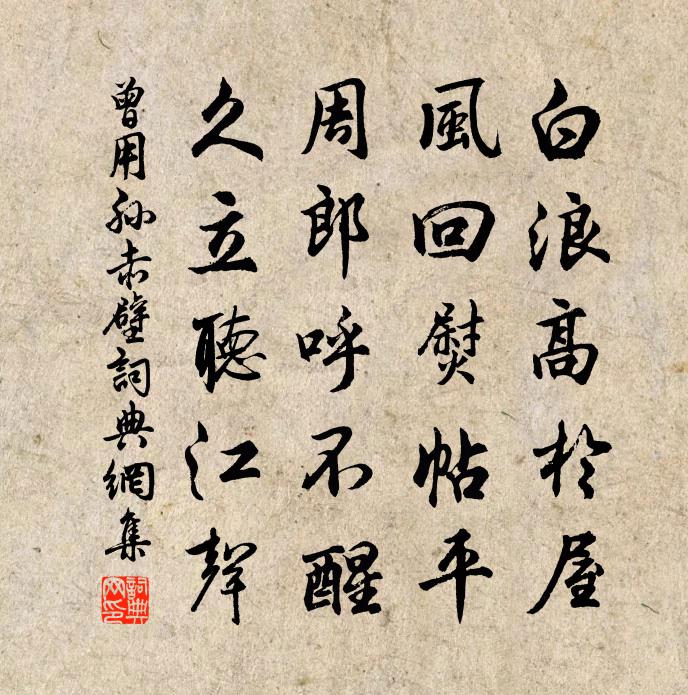 白浪高於屋
風回熨帖平
周郎呼不醒
久立聽江聲
曾用孫赤壁詞典網集
詞典網印